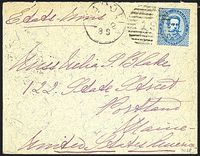 Etats Unis
Miss Julia S. Blake
122 State Street
Portland
Maine
United States America